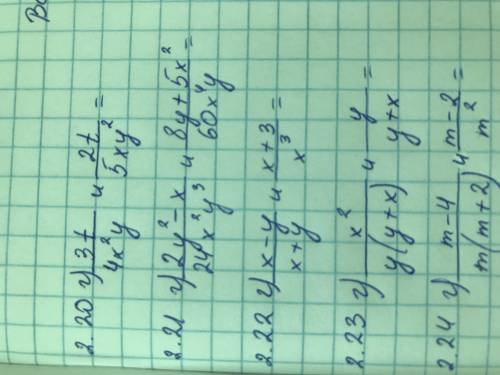 Во
2.20 г) 3t/4x²y и 2t/5xy² =
2.21 г) 2y² - x/24x²y³ и 8y + 5x²/60x⁴y =
2.22 г) x - y/x + y и x + 3/x³ =
2.23 г) x²/y(y + x) и y/y + x =
2.24 г) m - 4/m(m + 2) и m - 2/m² =